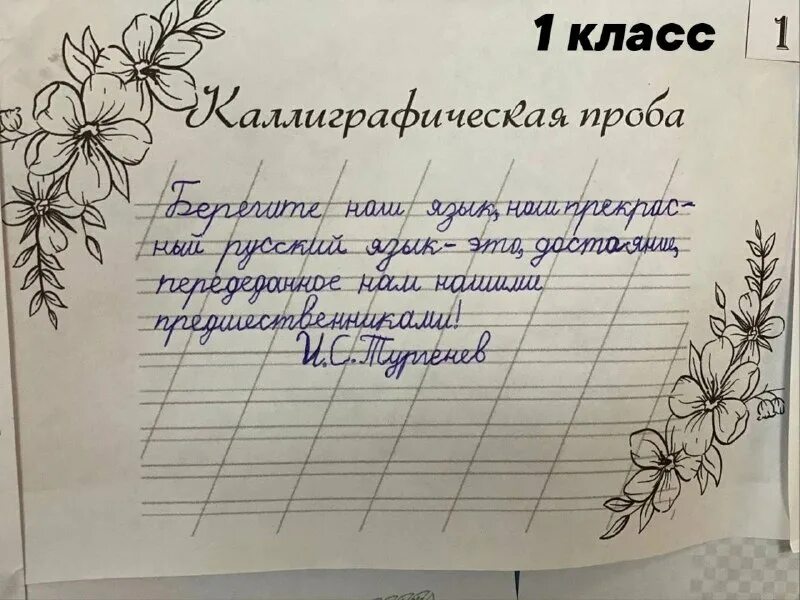 1 класс
1
Каллиграфическая проба
Берегите наш язык, наш прекрас-
ный русский язык- это, достояние,
передеданное нам нашими
предшественниками!
И.С.Тургенев